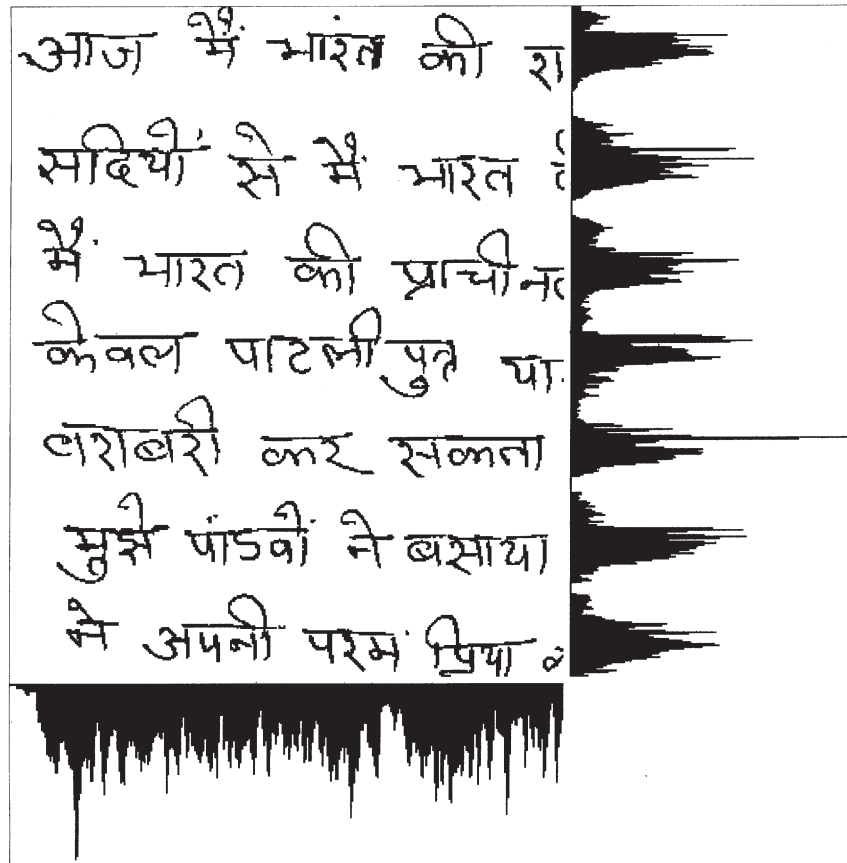 आज मैं भारंत की रा
सदियों से मैं भारत
मैं भारत की प्राचीन
केवल पाटलीपुत्र या
बराबरी कर सकता
मुझे पांडवों ने बसाया
मे अपनी परम प्रिया